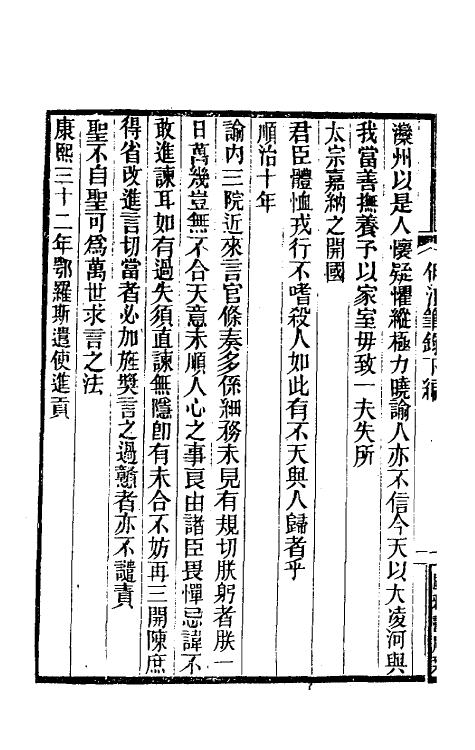 灤州以是人懷疑懼縱極力曉諭人亦不信今天以大凌河與
我當善撫養予以家室毋致一夫失所
太宗嘉納之開國
君臣體恤戎行不嗜殺人如此有不天與人歸者乎
順治十年
諭內三院近來言官條奏多係細務未見有規切朕躬者朕一
日萬幾豈無不合天意未順人心之事良由諸臣畏憚忌諱不
敢進諫耳如有過失須直諫無隱卽有未合不妨再三開陳庶
得省改進言切當者必加旌獎言之過戇者亦不譴責
聖不自聖可爲萬世求言之法
康熙三十二年鄂羅斯遣使進貢